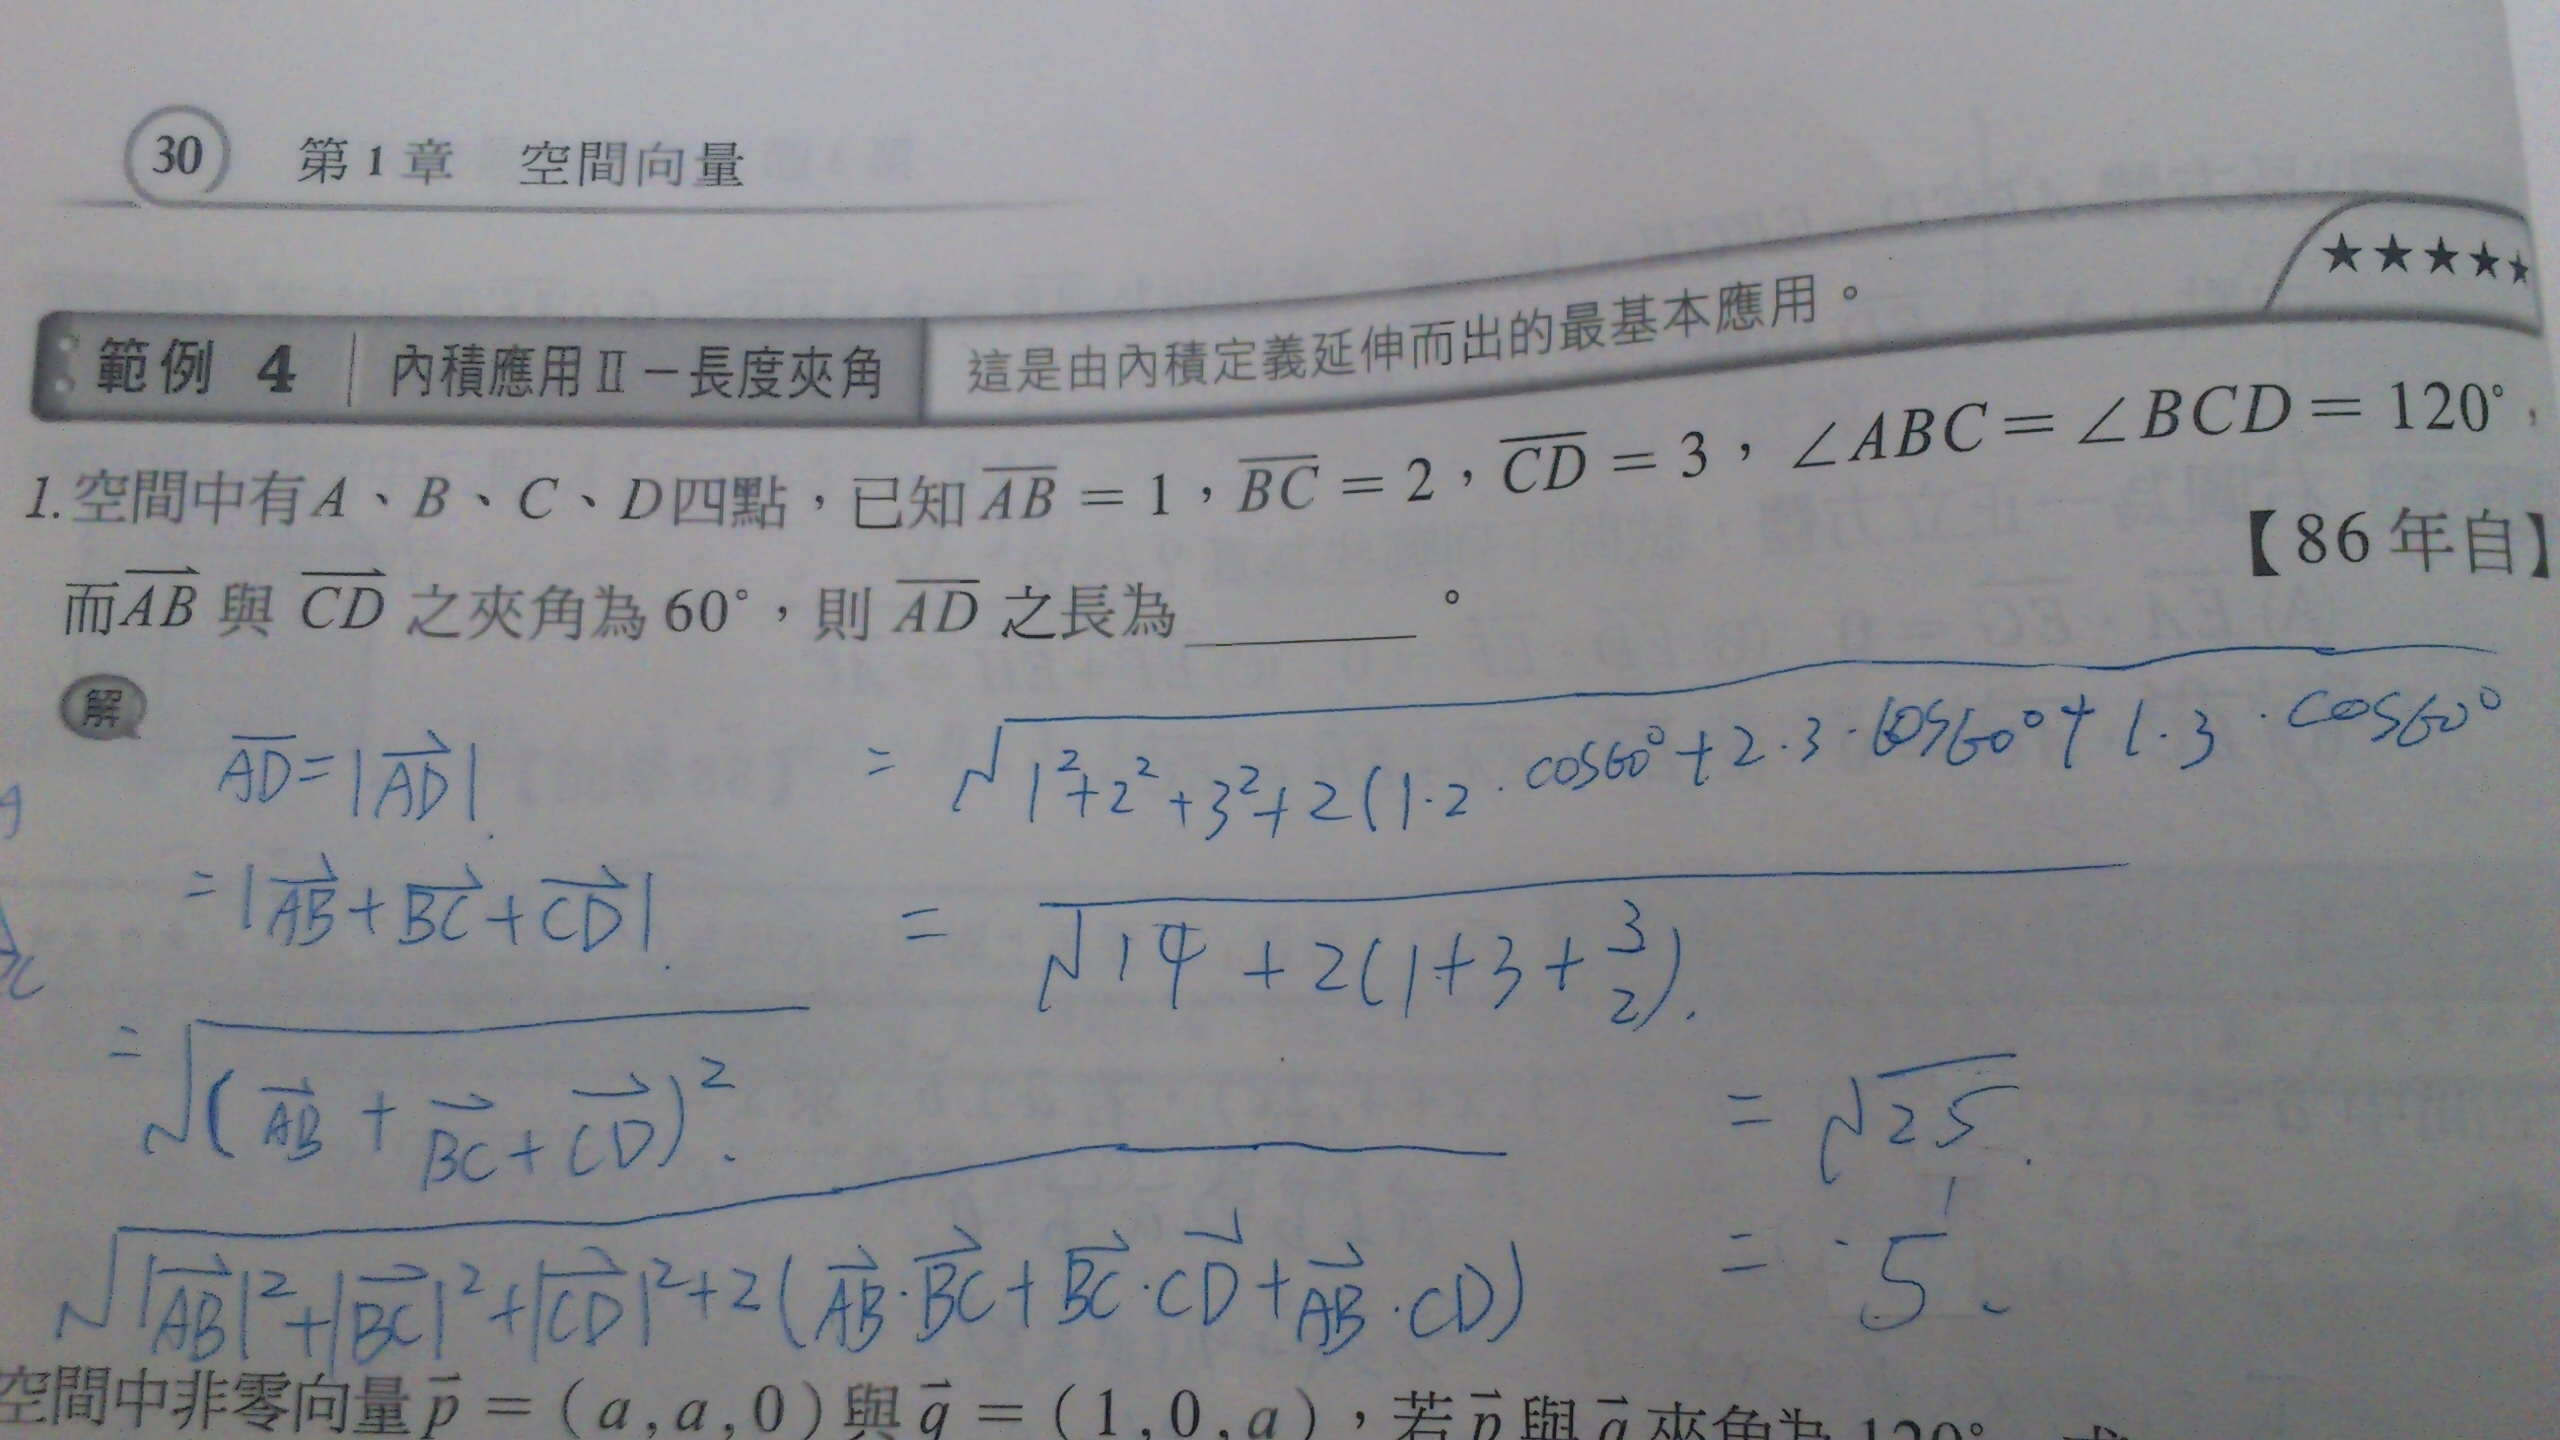 30 第1章 空間向量
★★★★★
範例 4 內積應用Ⅱ－長度夾角 這是由內積定義延伸而出的最基本應用。
1. 空間中有A、B、C、D四點，已知 \overline{AB} = 1，\overline{BC} = 2，\overline{CD} = 3，∠ABC = ∠BCD = 120°，
而 \overrightarrow{AB} 與 \overrightarrow{CD} 之夾角為 60°，則 \overline{AD} 之長為______。【86 年自】
解
\overline{AD} = |\overrightarrow{AD}|
= |\overrightarrow{AB} + \overrightarrow{BC} + \overrightarrow{CD}|
= √((\overrightarrow{AB} + \overrightarrow{BC} + \overrightarrow{CD})²)
√(|\overrightarrow{AB}|² + |\overrightarrow{BC}|² + |\overrightarrow{CD}|² + 2(\overrightarrow{AB}·\overrightarrow{BC} + \overrightarrow{BC}·\overrightarrow{CD} + \overrightarrow{AB}·CD))
= √(1² + 2² + 3² + 2(1·2·cos60° + 2·3·cos60° + 1·3·cos60°
= √(14 + 2(1 + 3 + 3/2))
= √25
= 5
空間中非零向量 \vec{p} = (a, a, 0) 與 \vec{q} = (1, 0, a)，若 \vec{p} 與 \vec{q} 夾角為 120°